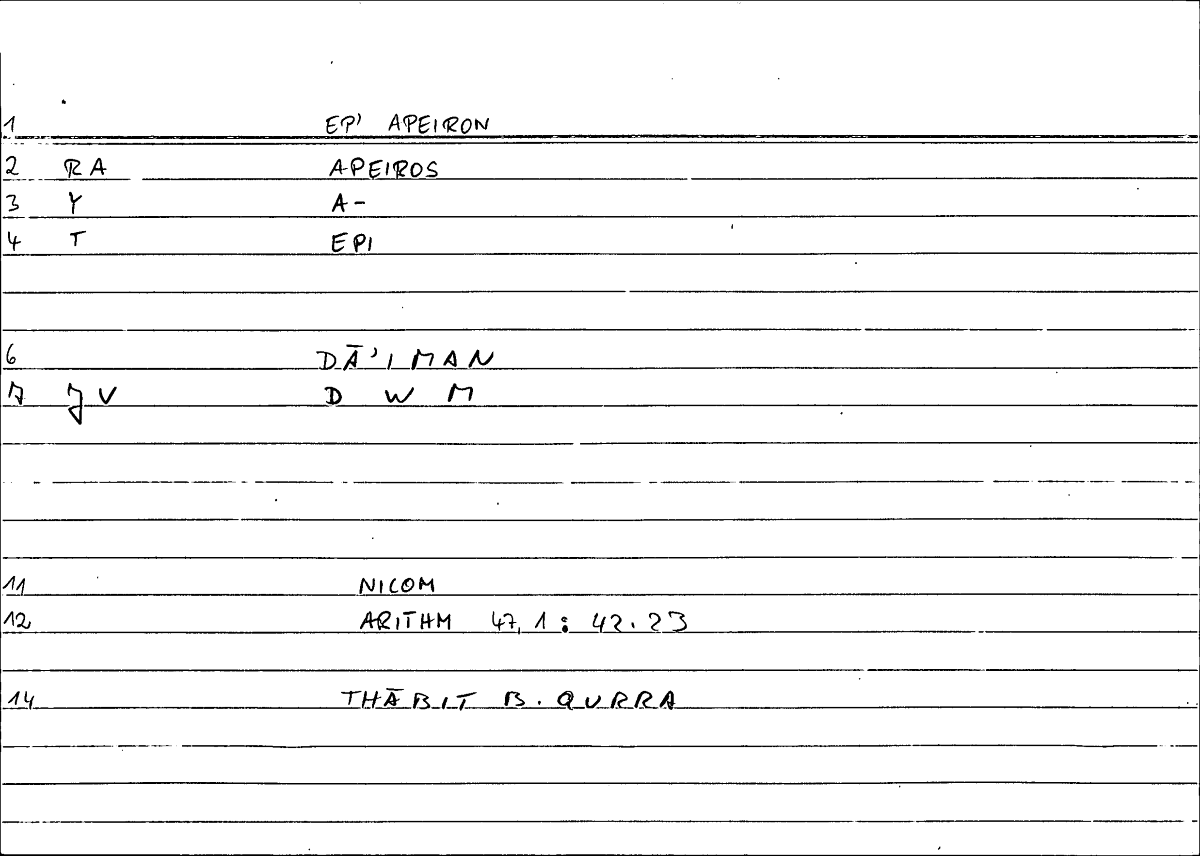 1 EP' APEIRON
2 RA APEIROS
3 Y A-
4 T EPI
6 DĀ'IMAN
7 JV D W M
11 NICOM
12 ARITHM 47,1 : 42.23
14 THĀBIT B. QURRA